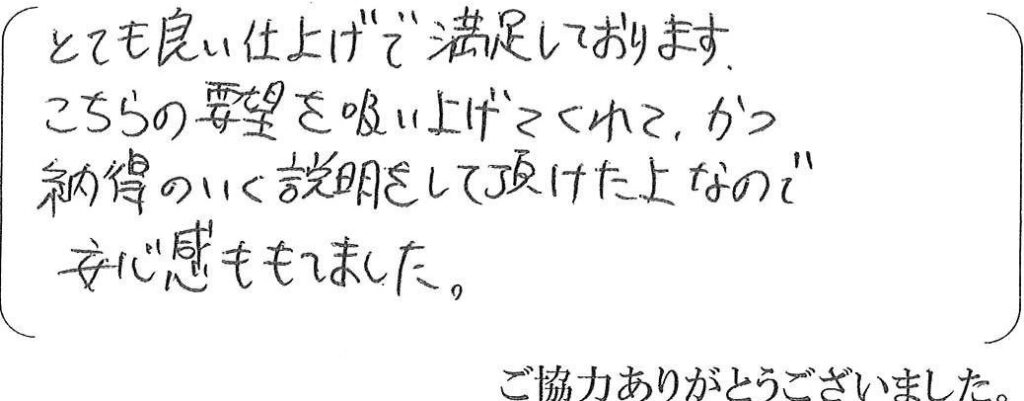 とても良い仕上げで満足しております.
こちらの要望を吸い上げてくれて、かつ
納得のいく説明をして頂けた上なので
安心感ももてました。
ご協力ありがとうございました。